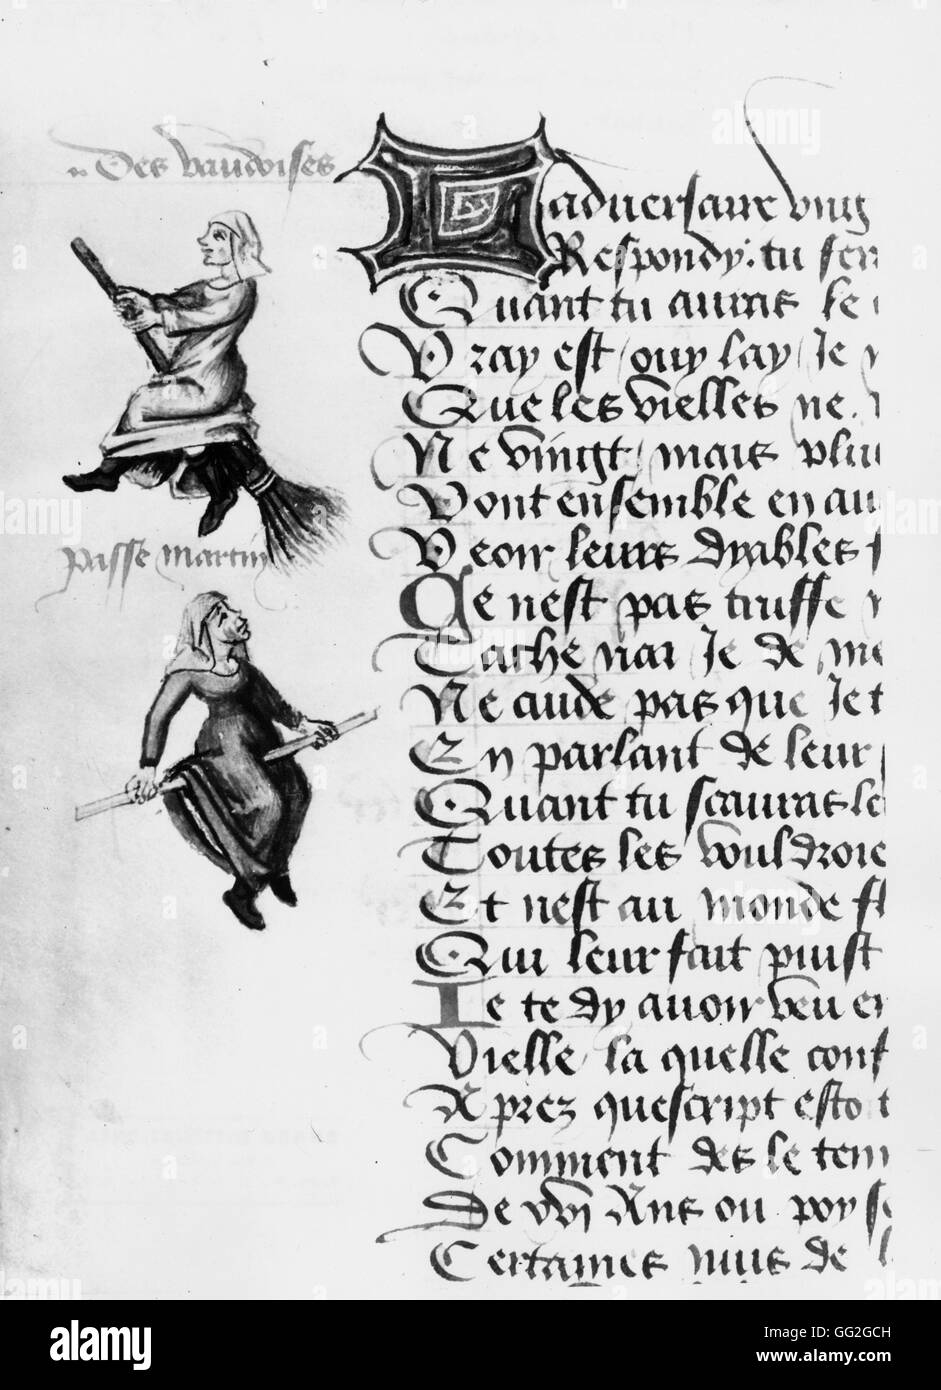 Des vaudoises
passe martin
Ladversaire vng
Respondy . tu ser
Quant tu auras le
Vray est / ouy lay / Je
Que les vielles ne
Ne vingt / mais plu
Vont ensemble en au
Veoir leurs dyables
Ce nest pas truffe
Tache nar Je de me
Ne cuide pas que Je t
En parlant de leur
Quant tu scauras le
Toutes les vouldroie
Et nest au monde
Qui leur fait puist
Je te dy avoir veu e
Vielle / la quelle conf
Aprez quescript esto
Comment des le tem
De xvi Ans ou poy s
Certaines nuis de
alamy
Image ID: GG2GCH
www.alamy.com